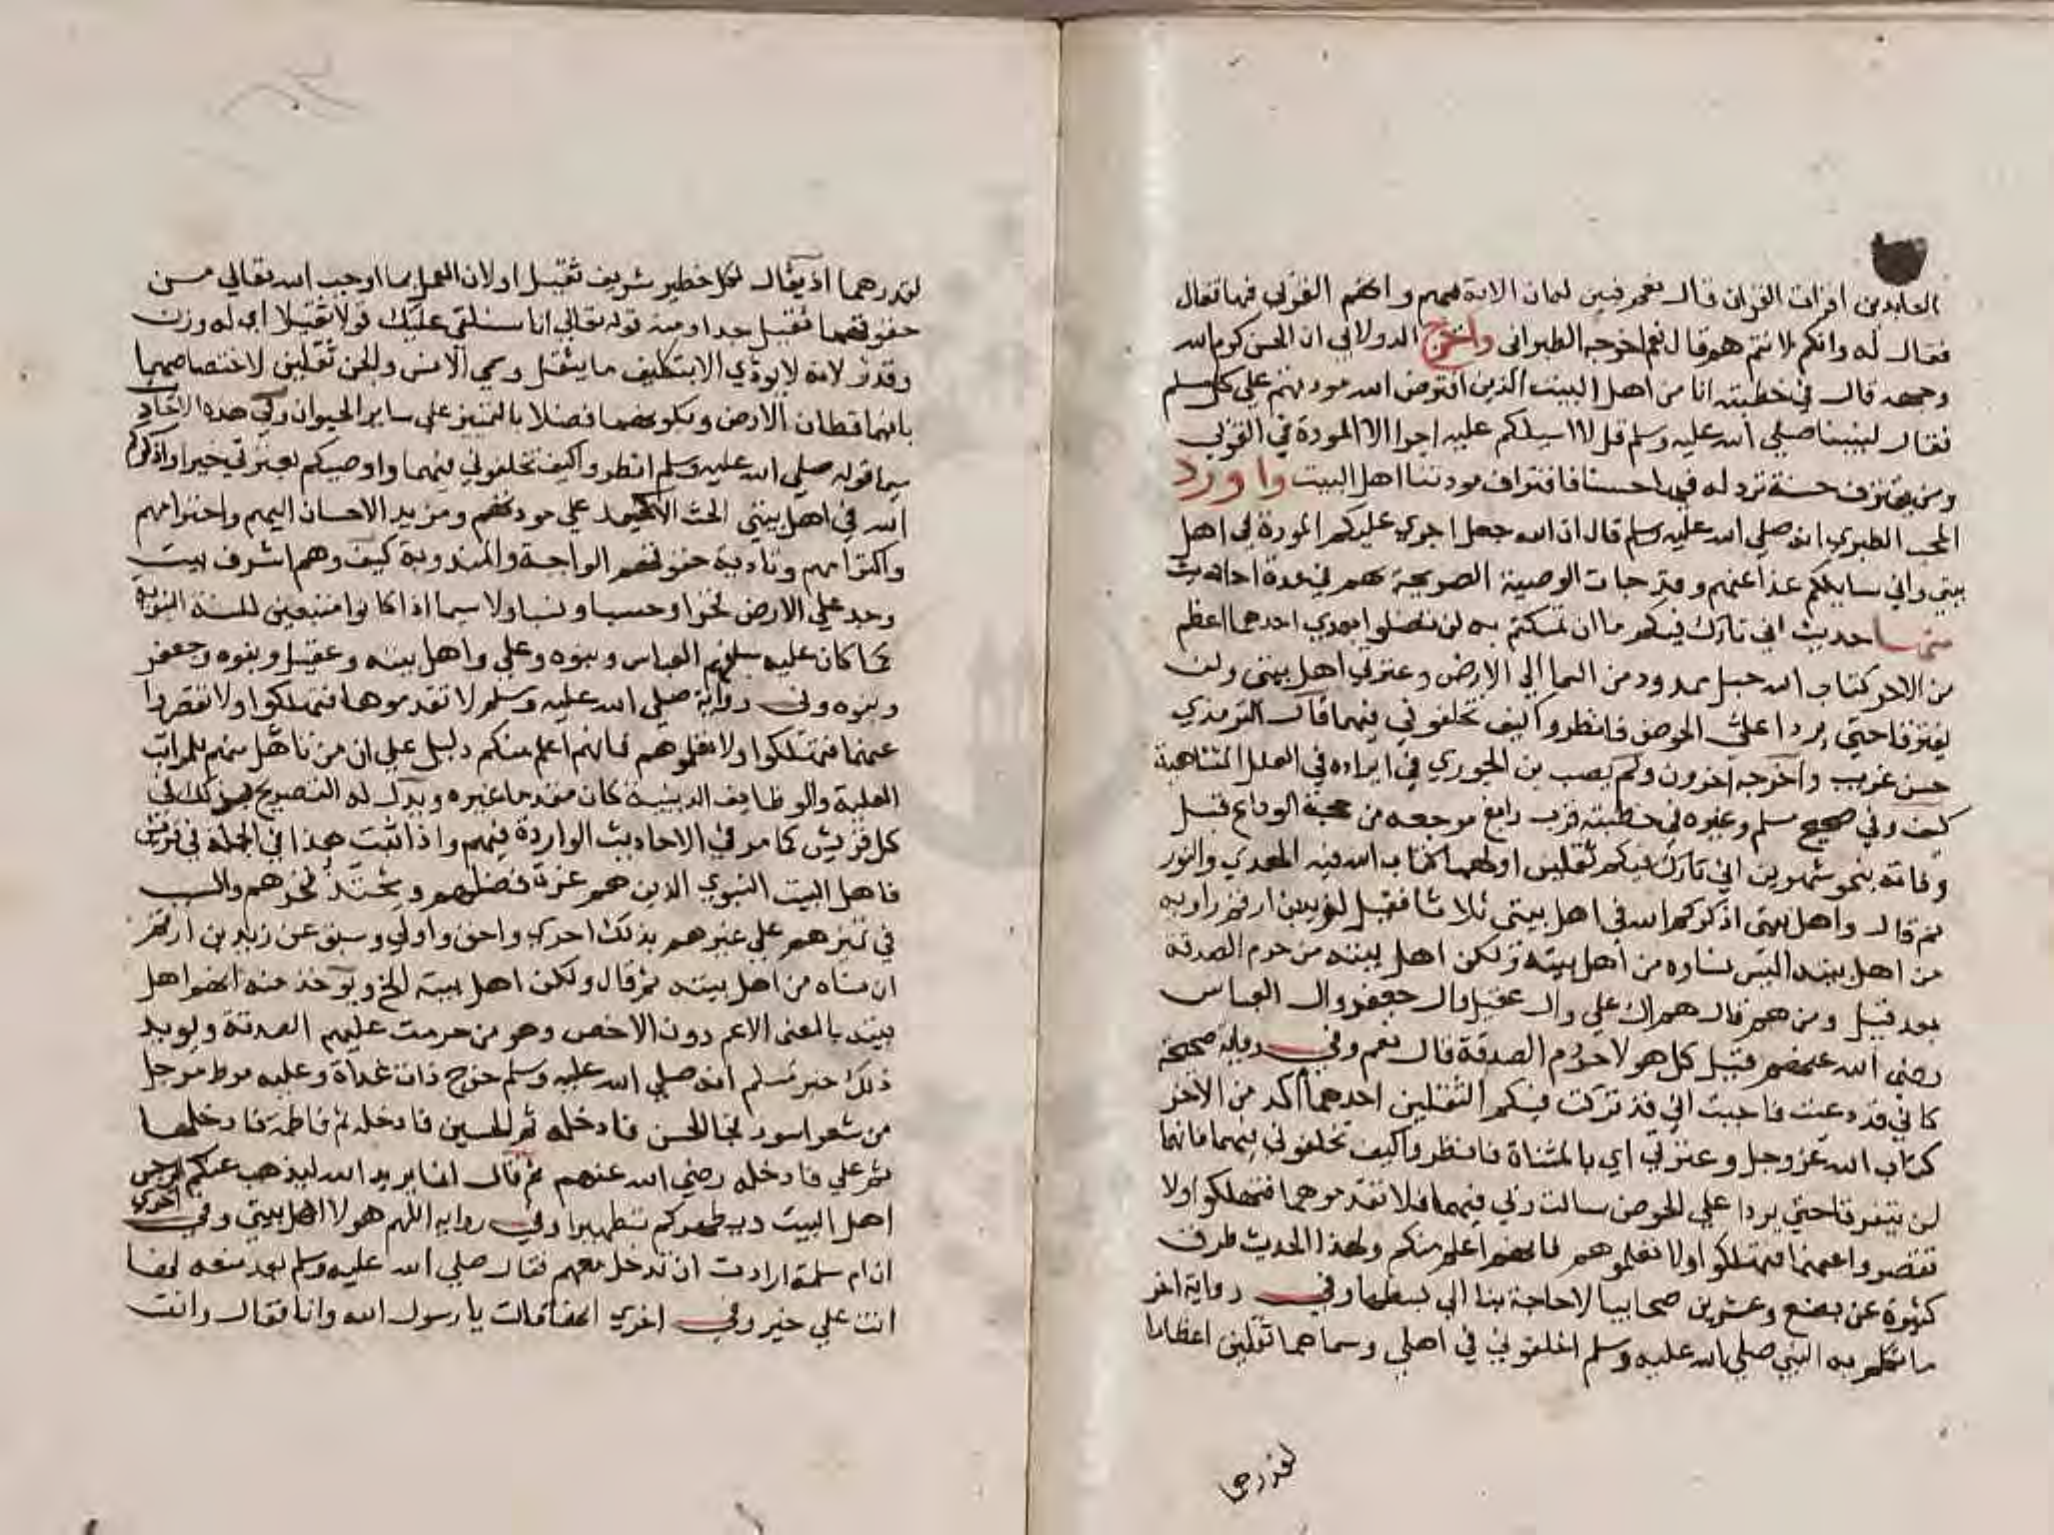 العابدين اقرات القران قال نعم فبين لهان الاية فيهم وانهم القربي فيها فقال
فقال له وانكم لانتم هم قال نعم اخرجه الطبراني واخرج الدولابي ان الحسن كرم الله
وجهه قال في خطبته انا من اهل البيت الذين افترض الله مودتهم علي كل مسلم
فقال لنبينا صلي الله عليه وسلم قل لا اسيلكم عليه اجرا الا المودة في القربي
ومن يقترف حسنة نزد له فيها حسنا فاقتراف مودتنا اهل البيت واورد
المحب الطبري انه صلي الله عليه وسلم قال ان الله جعل اجري عليكم المودة في اهل
بيتي واني سايلكم غدا عنهم وقد جات الوصية الصريحة بهم في عدة احاديث
منها حديث اني تارك فيكم ما ان تمسكتم به لن تضلوا بعدي احدهما اعظم
من الاخر كتاب الله حبل ممدود من السما الي الارض وعترتي اهل بيتي ولن
يفترقا حتي يردا علي الحوض فانظروا كيف تخلفوني فيهما قال الترمذي
حسن غريب واخرجه اخرون ولم يصب بن الجوزي في ايراده في العلل المتناهية
كيف وفي صحيح مسلم وغيره في خطبته قرب رابغ مرجعه من حجة الوداع قبل
وفاته بنحو شهرين اني تارك فيكم ثقلين اولهما كتاب الله فيه الهدي والنور
ثم قال واهل بيتي اذكركم الله في اهل بيتي ثلاثا فقيل لزيد بن ارقم راويه
من اهل بيته اليس نساوه من اهل بيته قال لكن اهل بيته من حرم الصدقة
بعده قيل ومن هم قال هم ال علي وال عقيل وال جعفر وال العباس
رضي الله عنهم قيل كل هولا حرم الصدقة قال نعم وفي رواية صحيحة
كاني قد دعيت فاجبت اني قد تركت فيكم الثقلين احدهما اكد من الاخر
كتاب الله عز وجل وعترتي اي بالمثناة فانظروا كيف تخلفوني فيهما فانهما
لن يتفرقا حتي يردا علي الحوض سالت ربي فيهما فلا تقدموهما فتهلكوا ولا
تقصروا عنهما فتهلكوا ولا تعلموهم فانهم اعلم منكم ولهذا الحديث طرق
كثيرة عن بضع وعشرين صحابيا لا حاجة بنا الي بسطها وفي رواية اخر
ما تكلم به النبي صلي الله عليه وسلم اخلفوني في اهلي وسماهما ثقلين اعظاما
لقدرهما
لقدرهما اذ يقال لكل خطير شريف ثقيل او لان العمل بما اوجب الله تعالي من
حقوقهما ثقيل جدا ومنه قوله تعالي انا سنلقي عليك قولا ثقيلا اي له وزن
وقدر لانه لا يودي الا بتكليف ما يثقل وسمي الانس والجن ثقلين لاختصاصهما
بانهما قطان الارض وبكونهما فضلا بالتمييز علي ساير الحيوان وفي هذه الاحاديث
سيما قوله صلي الله عليه وسلم انظروا كيف تخلفوني فيهما واوصيكم بعترتي خيرا واذكركم
الله في اهل بيتي الحث الاكيد علي مودتهم ومزيد الاحسان اليهم واحترامهم
واكرامهم وتادية حقوقهم الواجبة والمندوبة كيف وهم اشرف بيت
وجد علي الارض فخرا وحسبا ونسبا ولا سيما اذا كانوا متبعين للسنة النبوية
كما كان عليه سلفهم العباس وبنوه وعلي واهل بيته وعقيل وبنوه وجعفر
وبنوه وفي رواية صلي الله عليه وسلم لا تقدموها فتهلكوا ولا تقصروا
عنهما فتهلكوا ولا تعلموهم فانهم اعلم منكم دليل علي ان من تاهل منهم للمراتب
العلية والوظايف الدينية كان مقدما غيره ويدل له التصريح بذلك في
كل قريش كما مر في الاحاديث الواردة فيهم واذا ثبت هذا في الجملة في قريش
فاهل البيت النبوي الذين هم غرة فضلهم ومحتد فخرهم والسبب
في تميزهم علي غيرهم بذلك احري واحق واولي وسبق عن زيد بن ارقم
ان نساه من اهل بيته ثم قال ولكن اهل بيته الخ ويوخذ منه انهم اهل
بيته بالمعني الاعم دون الاخص وهو من حرمت عليهم الصدقة ويويد
ذلك خبر مسلم انه صلي الله عليه وسلم خرج ذات غداة وعليه مرط مرجل
من شعر اسود فجا الحسن فادخله ثم الحسين فادخله ثم فاطمة فادخلها
ثم علي فادخله رضي الله عنهم ثم قال انما يريد الله ليذهب عنكم الرجس
اهل البيت ويطهركم تطهيرا وفي رواية اللهم هولا اهل بيتي وفي اخري
ان ام سلمة ارادت ان تدخل معهم فقال صلي الله عليه وسلم بعد منعه لها
انت علي خير وفي اخري انها قالت يا رسول الله وانا فقال وانت